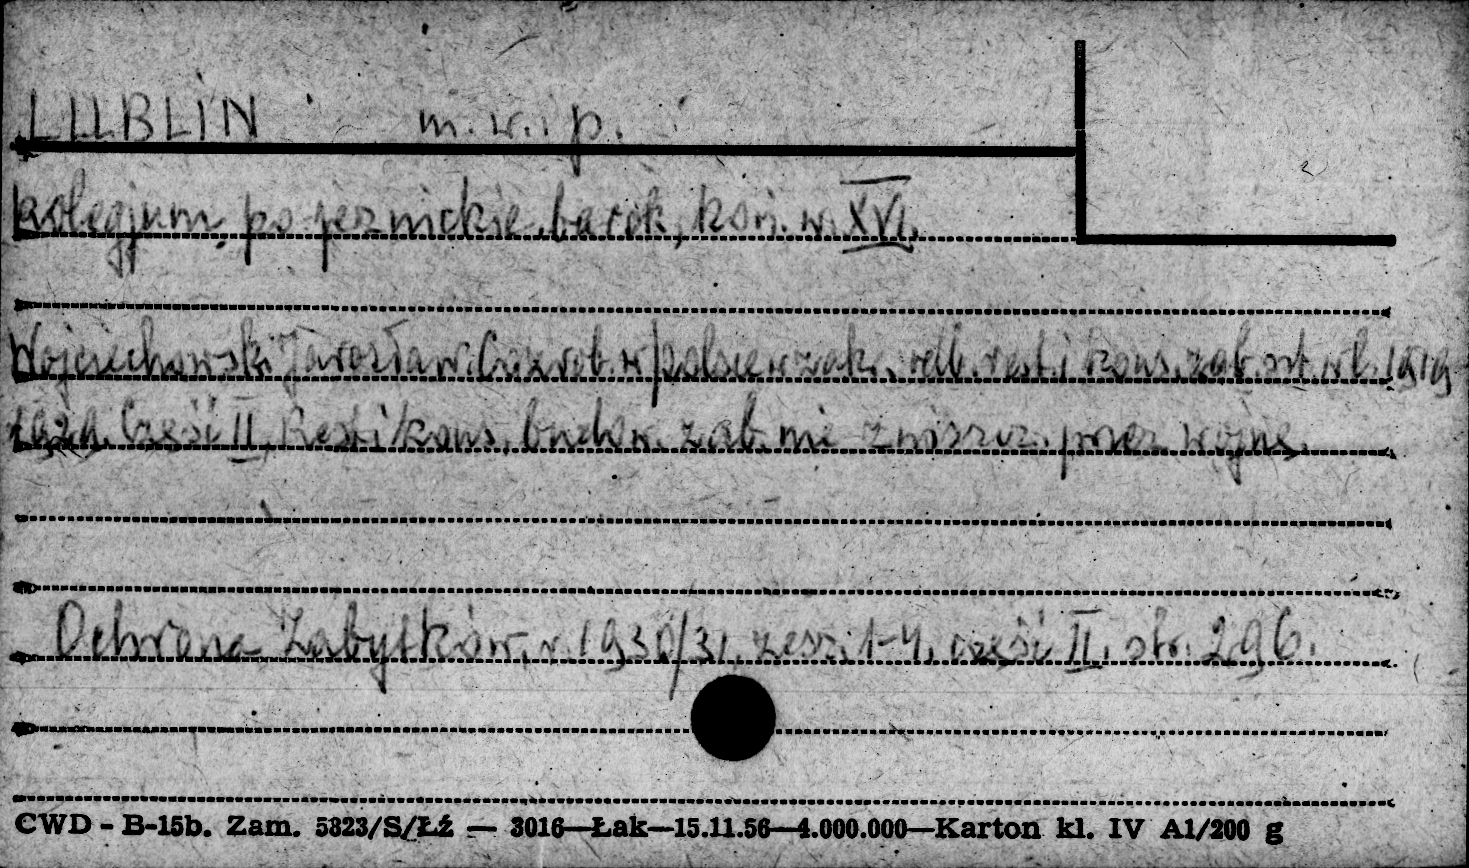 LUBLIN m. w. i p.
Kolegjum po-jezuickie, barok, koń. w. XVI.
Wojciechowski Jarosław. Co zrob. w polsce w zak. odb. rest. i kons. zab. szt. w l. 1919
1929. Część II. Rest. i kons. budow. zab. nie zniszcz. przez wojnę.
Ochrona Zabytków, r. 1930/31, zesz. 1-4, część II. str. 296.
CWD - B-15b. Zam. 5823/S/Łź — 3016—Łak—15.11.56—4.000.000—Karton kl. IV A1/200 g